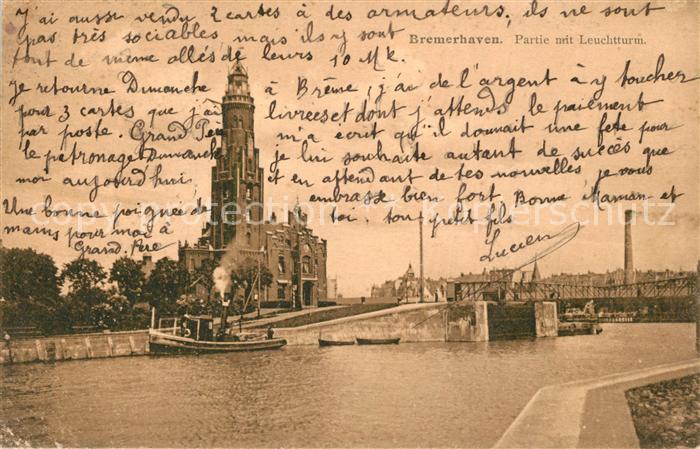 J'ai aussi vendu 2 cartes à des armateurs, ils ne sont
pas très sociables mais ils y sont
tout de même allés de leurs 10 Mk.
Bremerhaven. Partie mit Leuchtturm.
Je retourne Dimanche à Brême, j'ai de l'argent à y toucher
pour 3 cartes que j'ai livrées et dont j'attends le paiement
par poste. Grand Père m'a écrit qu'il donnait une fête pour
le patronage Dimanche je lui souhaite autant de succès que
moi aujourd'hui et en attendant de tes nouvelles je vous
embrasse bien fort Bonne Maman et
toi. ton petit fils
Lucien
Une bonne poignée de
mains pour moi à
Grand Père
copyright protection by papierschutz